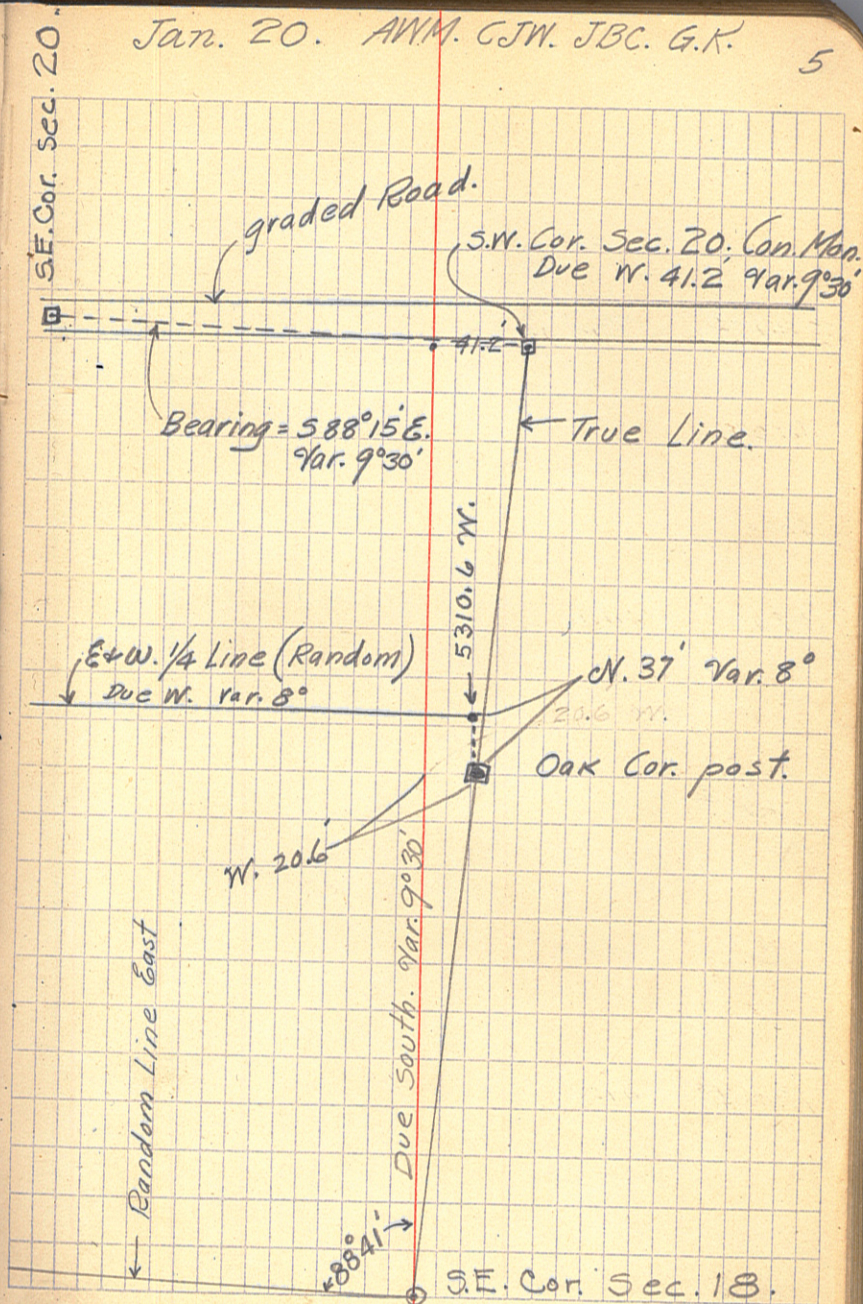 Jan. 20. AWM. CJW. JBC. G.K.
5
S.E. Cor. Sec. 20.
graded Road.
S.W. Cor. Sec. 20. Con. Mon.
Due W. 41.2' Var. 9°30'
41.2'
Bearing = S 88°15' E.
Var. 9°30'
True Line.
5310.6 W.
E & W. 1/4 Line (Random)
Due W. Var. 8°
N. 37' Var. 8°
20.6 W.
Oak Cor. post.
W. 20.6'
Due South. Var. 9°30'
Random Line East
88°41'
S.E. Cor. Sec. 18.